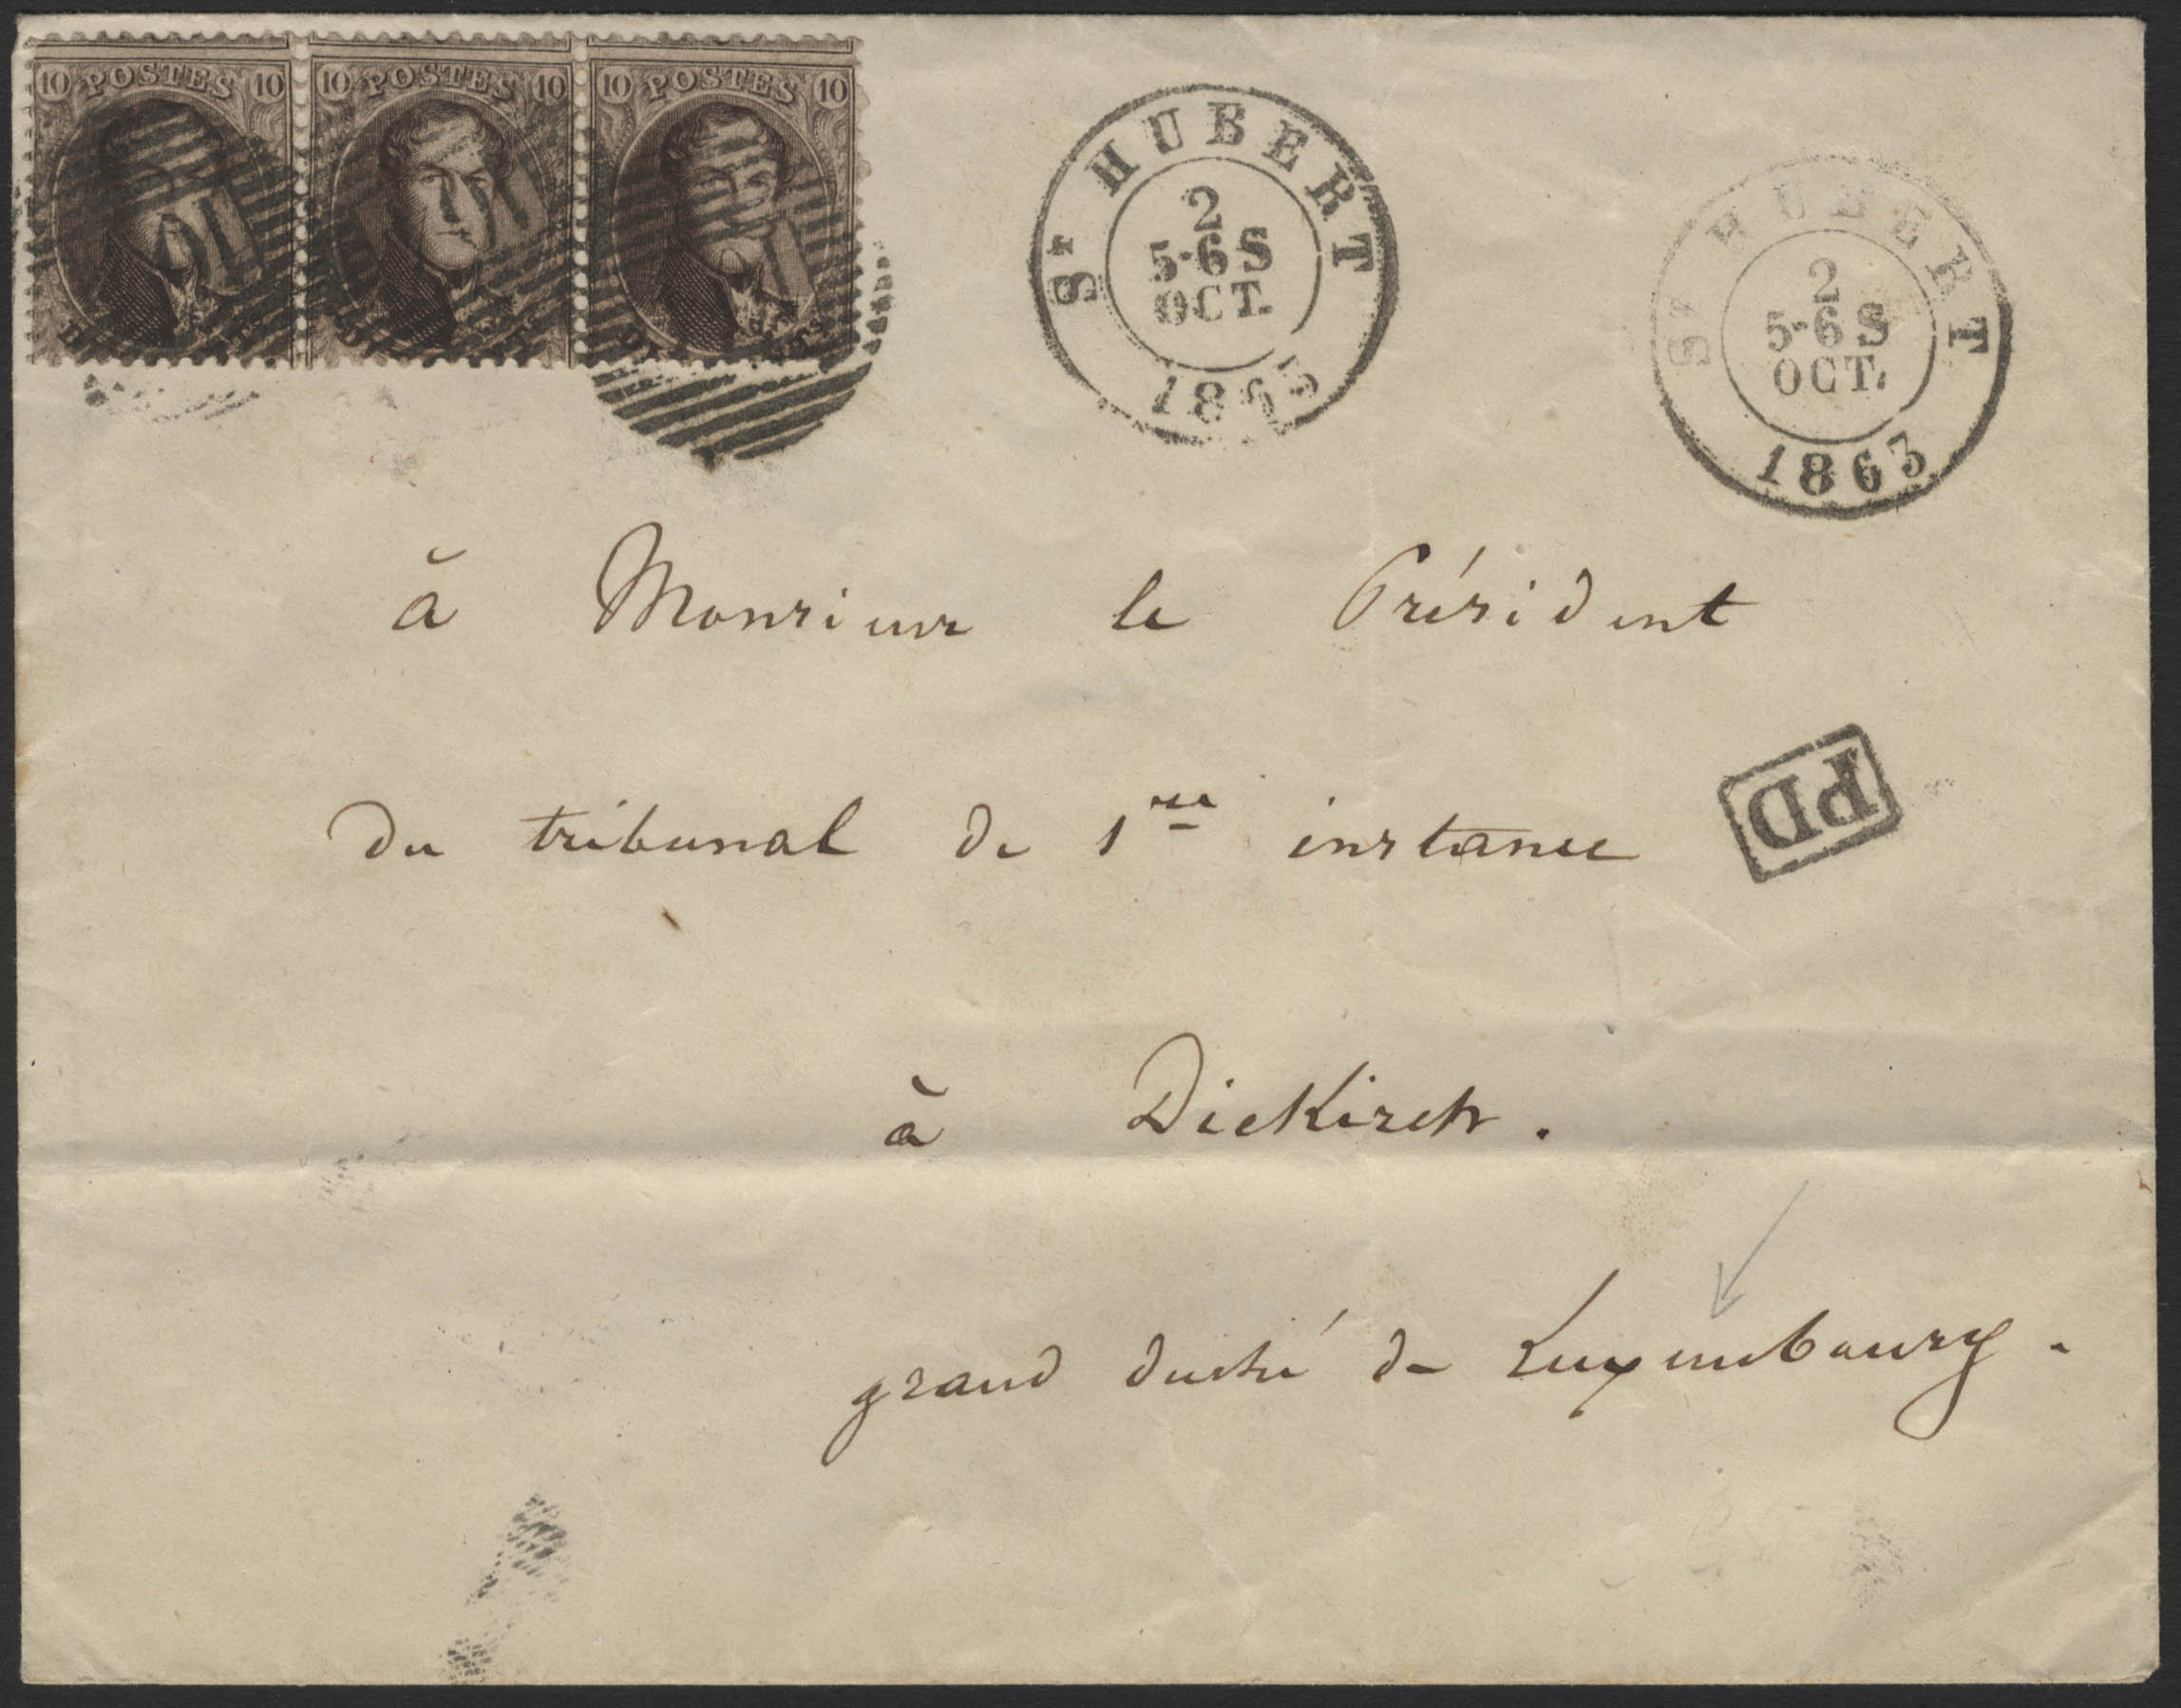 10 POSTES 10 10 POSTES 10 10 POSTES 10
St HUBERT
2
5-6 S
OCT.
1863
St HUBERT
2
5-6 S
OCT.
1863
à Monsieur le Président
du tribunal de 1re instance
PD
à Diekirch.
grand duché de Luxembourg.